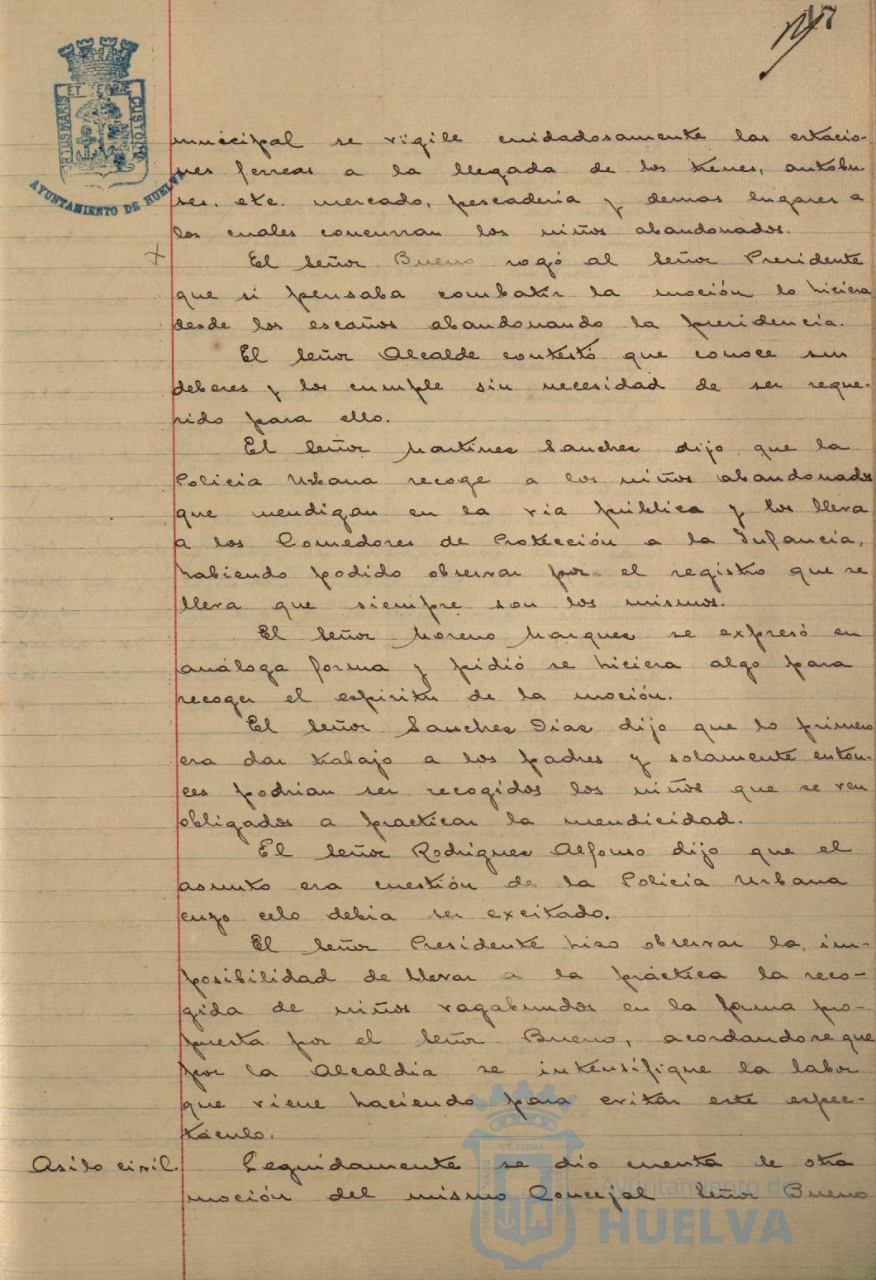 17
PORTUS MARIS ET TERRE CUSTODIA
AYUNTAMIENTO DE HUELVA
municipal se vigile cuidadosamente las estacio-
nes ferreas a la llegada de los trenes, autobu-
ses, etc. mercado, pescaderia y demas lugares a
los cuales concurran los niños abandonados.
El señor Bueno rogó al señor Presidente
que si pensaba combatir la moción lo hiciera
desde los escaños abandonando la presidencia.
El señor Alcalde contestó que conoce sus
deberes y los cumple sin necesidad de ser reque-
rido para ello.
El señor Martines Sanches dijo que la
Policia Urbana recoge a los niños abandonados
que mendigan en la via pública y los lleva
a los Comedores de Protección a la Infancia,
habiendo podido observar por el registro que se
lleva que siempre son los mismos.
El señor Moreno Marques se expresó en
análoga forma y pidió se hiciera algo para
recoger el espiritu de la moción.
El señor Sanches Dias dijo que lo primero
era dar trabajo a los padres y solamente enton-
ces podrian ser recogidos los niños que se ven
obligados a practicar la mendicidad.
El señor Rodrigues Alfonso dijo que el
asunto era cuestión de la Policia Urbana
cuyo celo debia ser excitado.
El señor Presidente hiso observar la im-
posibilidad de llevar a la práctica la reco-
gida de niños vagabundos en la forma pro-
puesta por el señor Bueno, acordandose que
por la Alcaldia se intensifique la labor
que viene haciendo para evitar este espec-
táculo.
Asilo civil. Seguidamente se dio cuenta de otra
moción del mismo Concejal señor Bueno
Ayuntamiento de
HUELVA